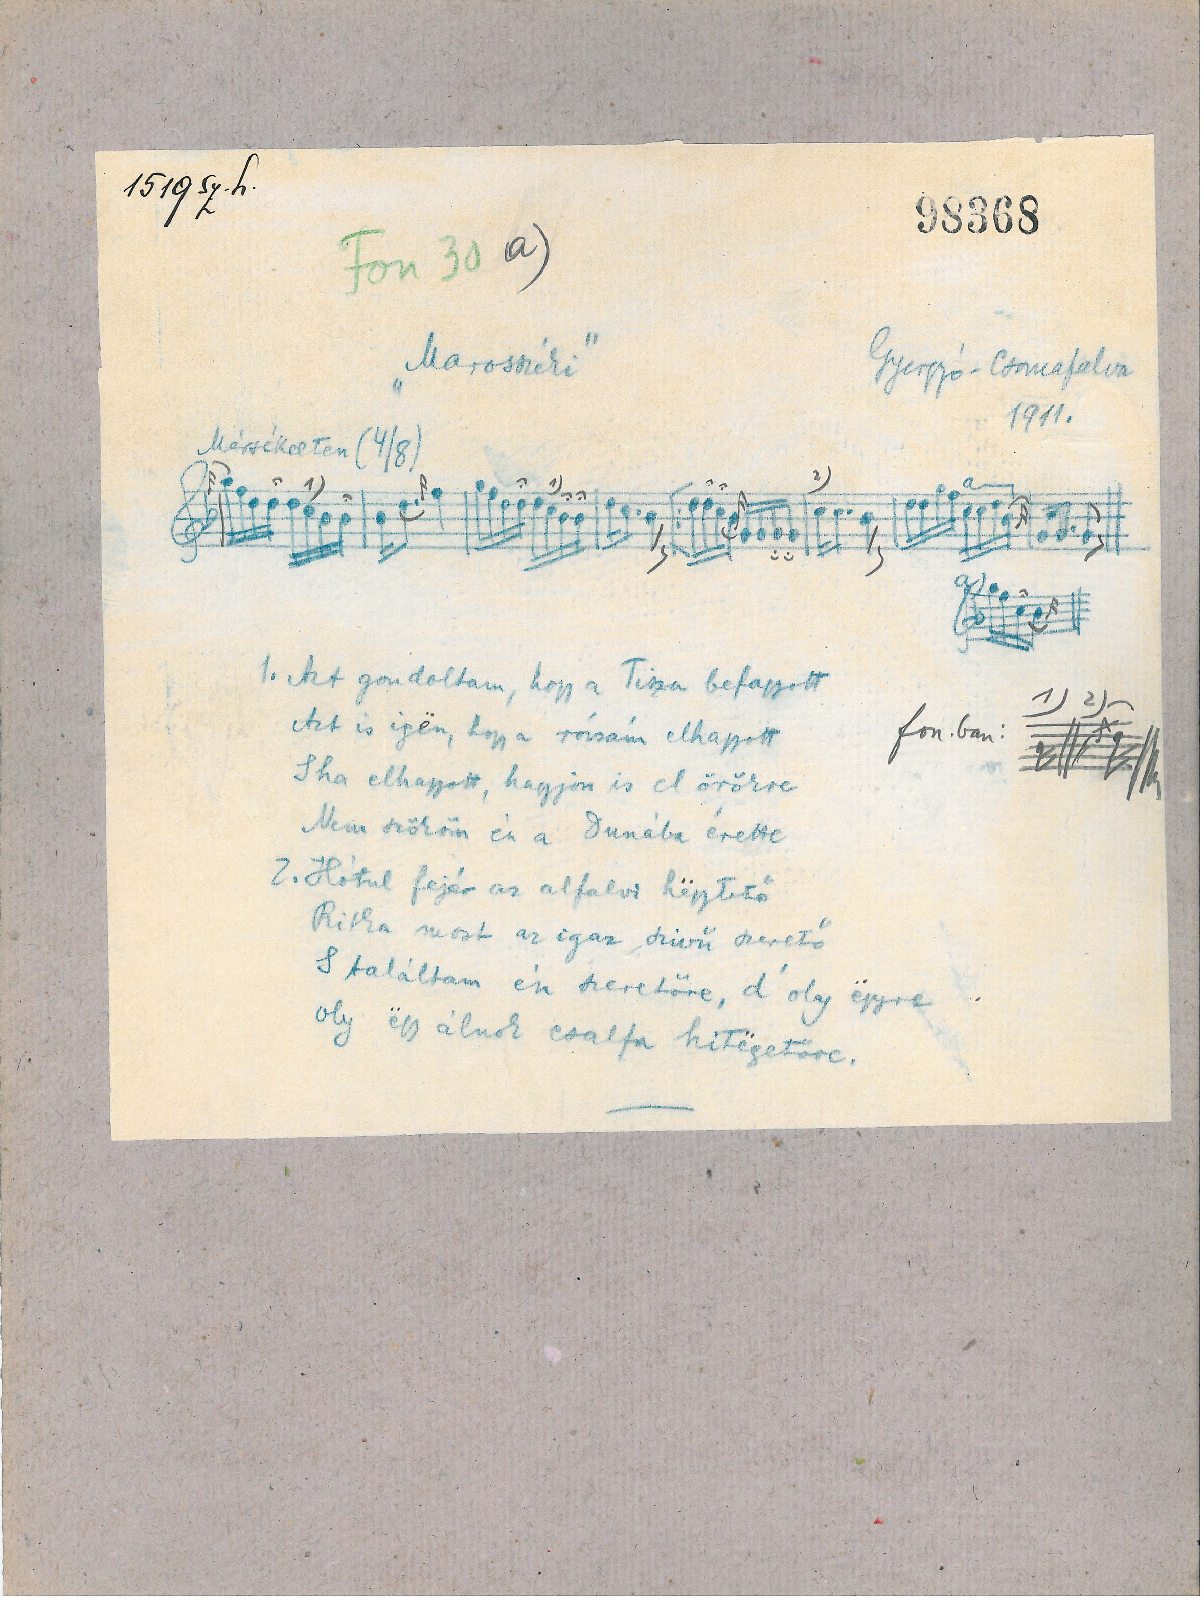 1519 sz. h.
98368
Fon 30 a)
„Marosszéki"
Gyergyó-Csomafalva
1911.
Mérsékelten (4/8)
1)
1)
2)
a
a)
1. Azt gondoltam, hogy a Tisza befagyott
Azt is igën, hogy a rózsám elhagyott
S ha elhagyott, hagyjon is el örökre
Nem szököm én a Dunába érette
fon. ban: 1) 2)
2. Hótul fejér az alfalvi hëgytető
Ritka most az igaz szivű szerető
S találtam én szeretőre, d' oly ëgyre
oly ëgy álnok csalfa hitëgetőre.